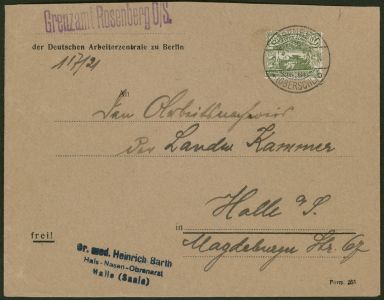 Grenzamt Rosenberg O/S.
der Deutschen Arbeiterzentrale zu Berlin
117/21
An
den Arbeitsnachweis
der Landw Kammer
Halle a/S.
in
Magdeburger Str. 67
frei!
Dr. med. Heinrich Barth
Hals-Nasen-Ohrenarzt
Halle (Saale)
Form. 253
(OBERSCHL.)